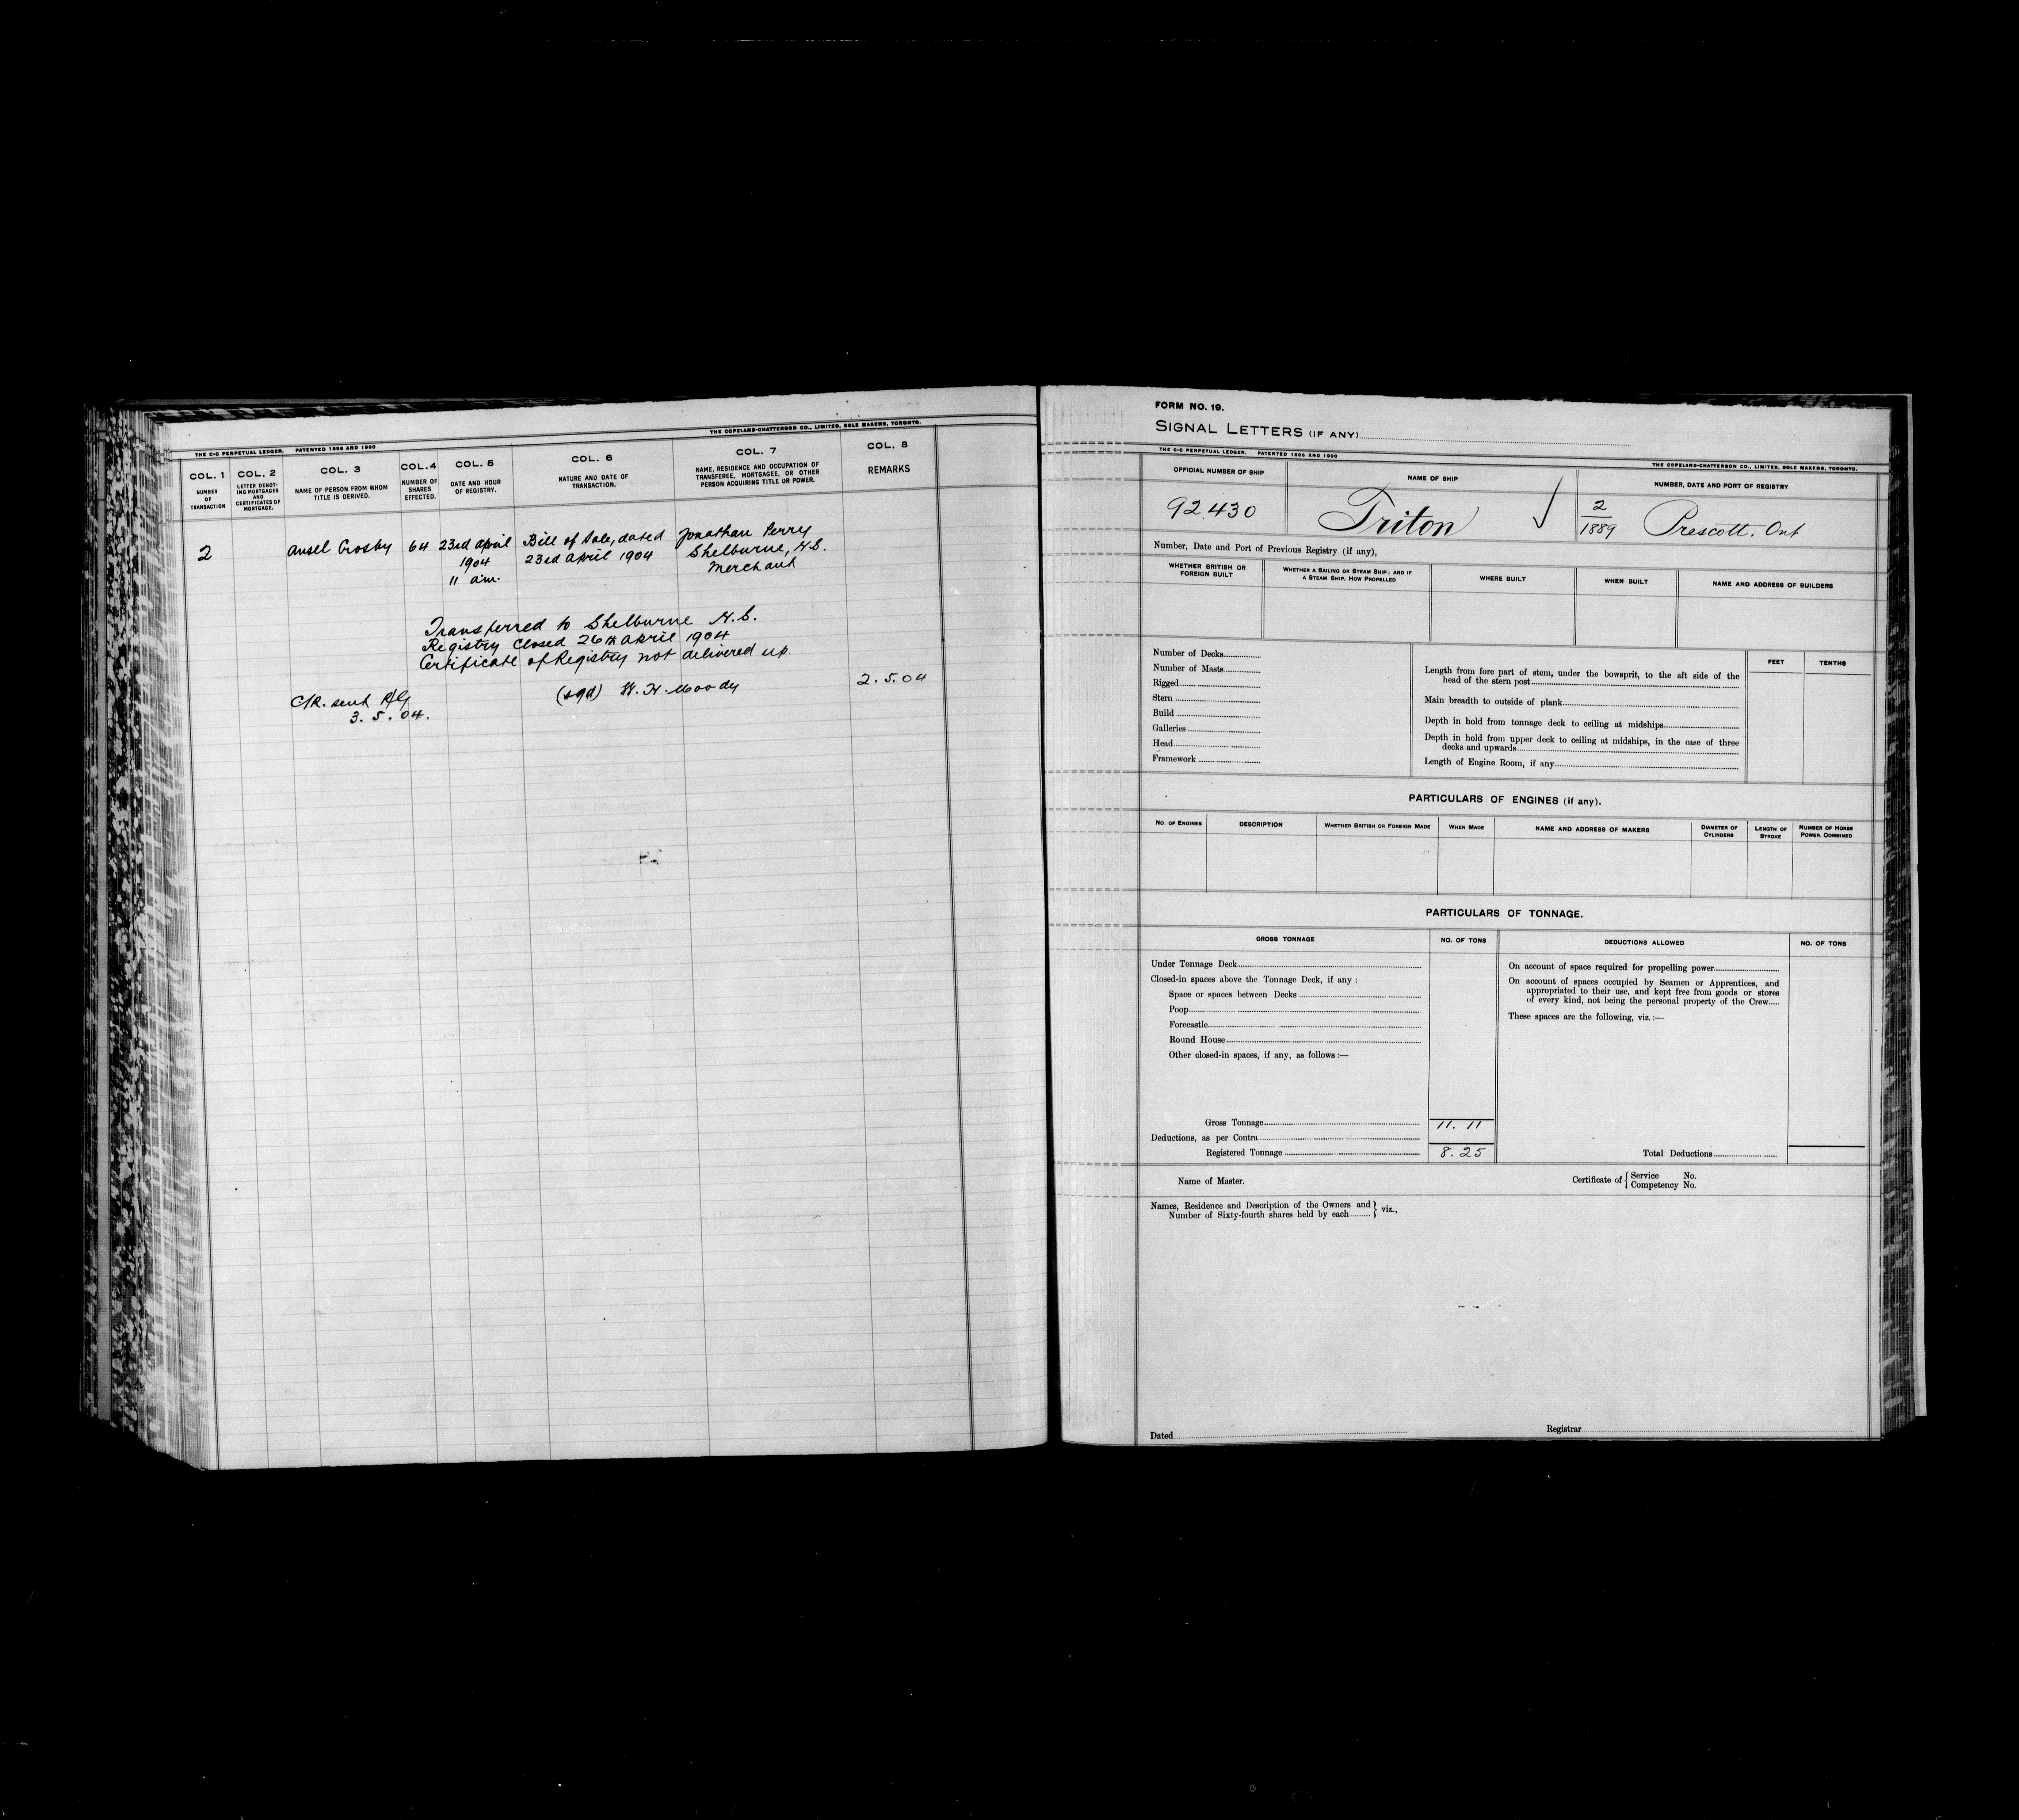 THE C-C PERPETUAL LEDGER. PATENTED 1896 AND 1900 THE COPELAND-CHATTERSON CO., LIMITED, SOLE MAKERS, TORONTO.
COL. 1 COL. 2 COL. 3 COL. 4 COL. 5 COL. 6 COL. 7 COL. 8
NUMBER OF TRANSACTION
LETTER DENOT-ING MORTGAGES AND CERTIFICATES OF MORTGAGE.
NAME OF PERSON FROM WHOM TITLE IS DERIVED.
NUMBER OF SHARES EFFECTED.
DATE AND HOUR OF REGISTRY.
NATURE AND DATE OF TRANSACTION.
NAME, RESIDENCE AND OCCUPATION OF TRANSFEREE, MORTGAGEE, OR OTHER PERSON ACQUIRING TITLE OR POWER.
REMARKS
2 Ansel Crosby 64 23rd April Bill of Sale, dated Jonathan Perry
1904 23rd April 1904 Shelburne, N.S.
11 a.m. Merchant
Transferred to Shelburne N.S.
Registry Closed 26th April 1904
Certificate of Registry not delivered up.
(sgd) W. H. Moody 2.5.04
C/R. sent R/G
3.5.04.
FORM NO. 19.
SIGNAL LETTERS (IF ANY)
THE C-C PERPETUAL LEDGER. PATENTED 1896 AND 1900 THE COPELAND-CHATTERSON CO., LIMITED, SOLE MAKERS, TORONTO.
OFFICIAL NUMBER OF SHIP NAME OF SHIP NUMBER, DATE AND PORT OF REGISTRY
92.430 Triton ✓ 2/1889 Prescott. Ont
Number, Date and Port of Previous Registry (if any),
WHETHER BRITISH OR FOREIGN BUILT
WHETHER A SAILING OR STEAM SHIP; AND IF A STEAM SHIP, HOW PROPELLED
WHERE BUILT
WHEN BUILT
NAME AND ADDRESS OF BUILDERS
Number of Decks
Number of Masts
Rigged
Stern
Build
Galleries
Head
Framework
FEET TENTHS
Length from fore part of stem, under the bowsprit, to the aft side of the
head of the stern post
Main breadth to outside of plank
Depth in hold from tonnage deck to ceiling at midships
Depth in hold from upper deck to ceiling at midships, in the case of three
decks and upwards
Length of Engine Room, if any
PARTICULARS OF ENGINES (if any).
NO. OF ENGINES DESCRIPTION WHETHER BRITISH OR FOREIGN MADE WHEN MADE NAME AND ADDRESS OF MAKERS DIAMETER OF CYLINDERS LENGTH OF STROKE NUMBER OF HORSE POWER, COMBINED
PARTICULARS OF TONNAGE.
GROSS TONNAGE NO. OF TONS DEDUCTIONS ALLOWED NO. OF TONS
Under Tonnage Deck
Closed-in spaces above the Tonnage Deck, if any :
Space or spaces between Decks
Poop
Forecastle
Round House
Other closed-in spaces, if any, as follows :—
Gross Tonnage 11.11
Deductions, as per Contra
Registered Tonnage 8.25
On account of space required for propelling power
On account of spaces occupied by Seamen or Apprentices, and
appropriated to their use, and kept free from goods or stores
of every kind, not being the personal property of the Crew
These spaces are the following, viz. :—
Total Deductions
Name of Master. Certificate of { Service No.
Competency No.
Names, Residence and Description of the Owners and
Number of Sixty-fourth shares held by each } viz.,
Dated Registrar